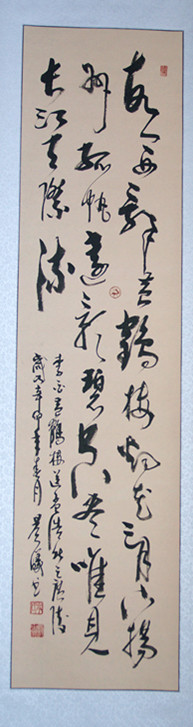 故人西辭黃鶴樓煙花三月下揚
州孤帆遠影碧空盡唯見
長江天際流
李白黃鶴樓送孟浩然之廣陵